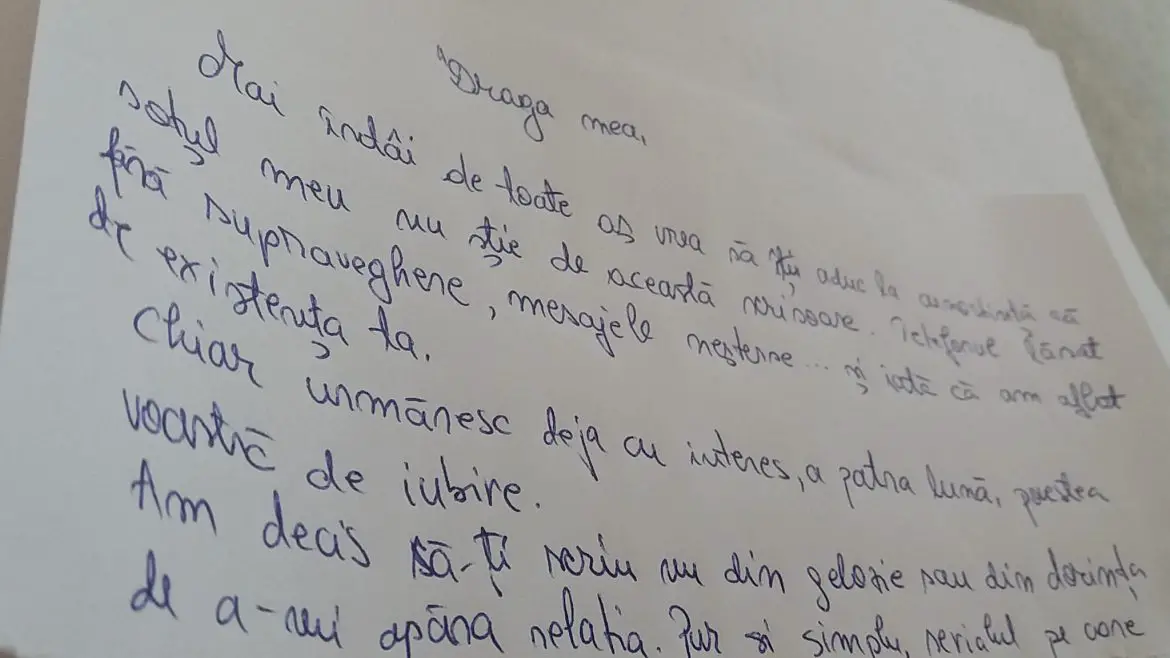 "Draga mea,
Mai întâi de toate aș vrea să îți aduc la cunoștință că
soțul meu nu știe de această scrisoare. Telefonul lăsat
fără supraveghere, mesajele neșterse... și iată că am aflat
de existența ta.
Chiar urmăresc deja cu interes, a patra lună, povestea
voastră de iubire.
Am decis să-ți scriu nu din gelozie sau din dorința
de a-mi apăra relația. Pur și simplu, serialul pe care